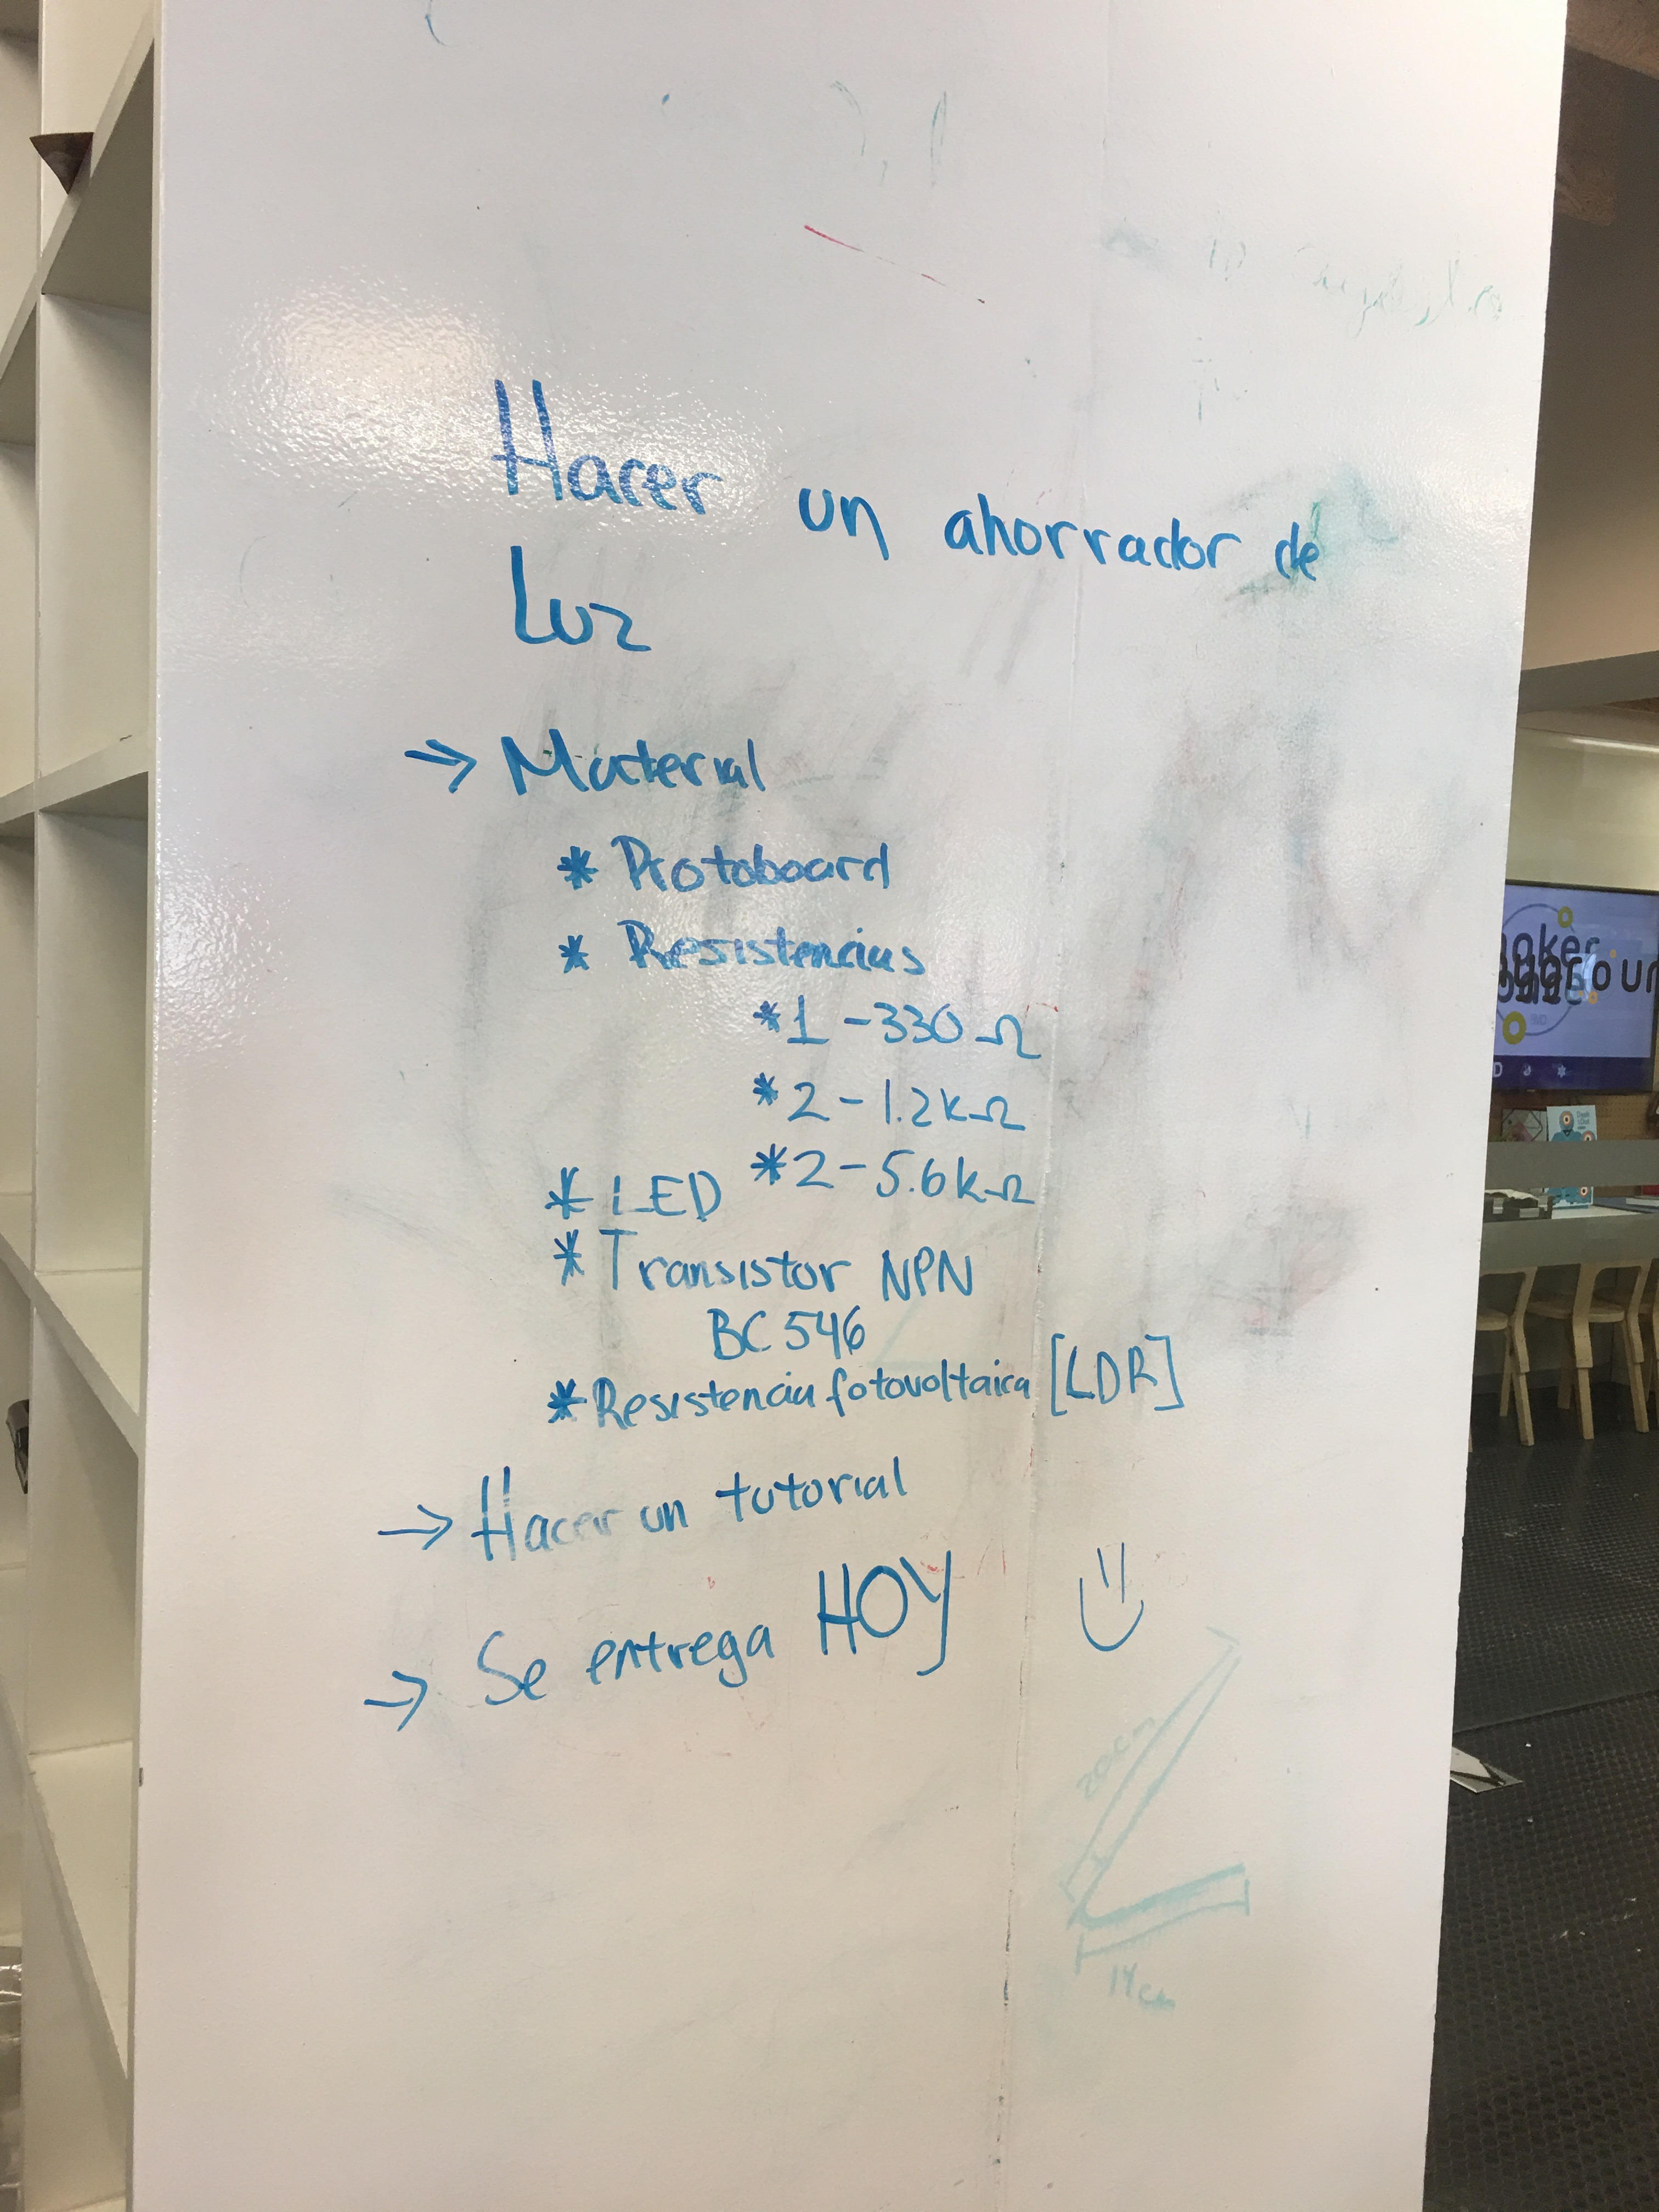 Hacer un ahorrador de
Luz
→ Material
* Protoboard
* Resistencias
* 1 - 330 Ω
* 2 - 1.2 k Ω
* 2 - 5.6 k Ω
* LED
* Transistor NPN
BC 546
* Resistencia fotovoltaica [LDR]
→ Hacer un tutorial
→ Se entrega HOY